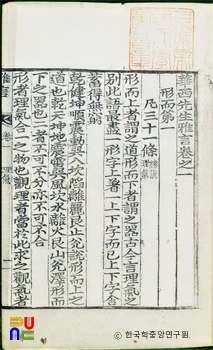 華西先生雅言卷之一
形而第一
凡三十一條
形而上者謂之道形而下者謂之器古今言理氣之
別此語最盡一形字上著一上下字而已上下字含
蓄得無窮
乾健坤順震動巽入坎陷離麗艮止兌說形而上之
道也乾天坤地震雷巽風坎水離火艮山兌澤形而
下之器也二者不可不分亦不可不合
形者理氣合一之物也觀理者當於此求之觀氣者
雅言
卷一
一
PUNC
©한국학중앙연구원.